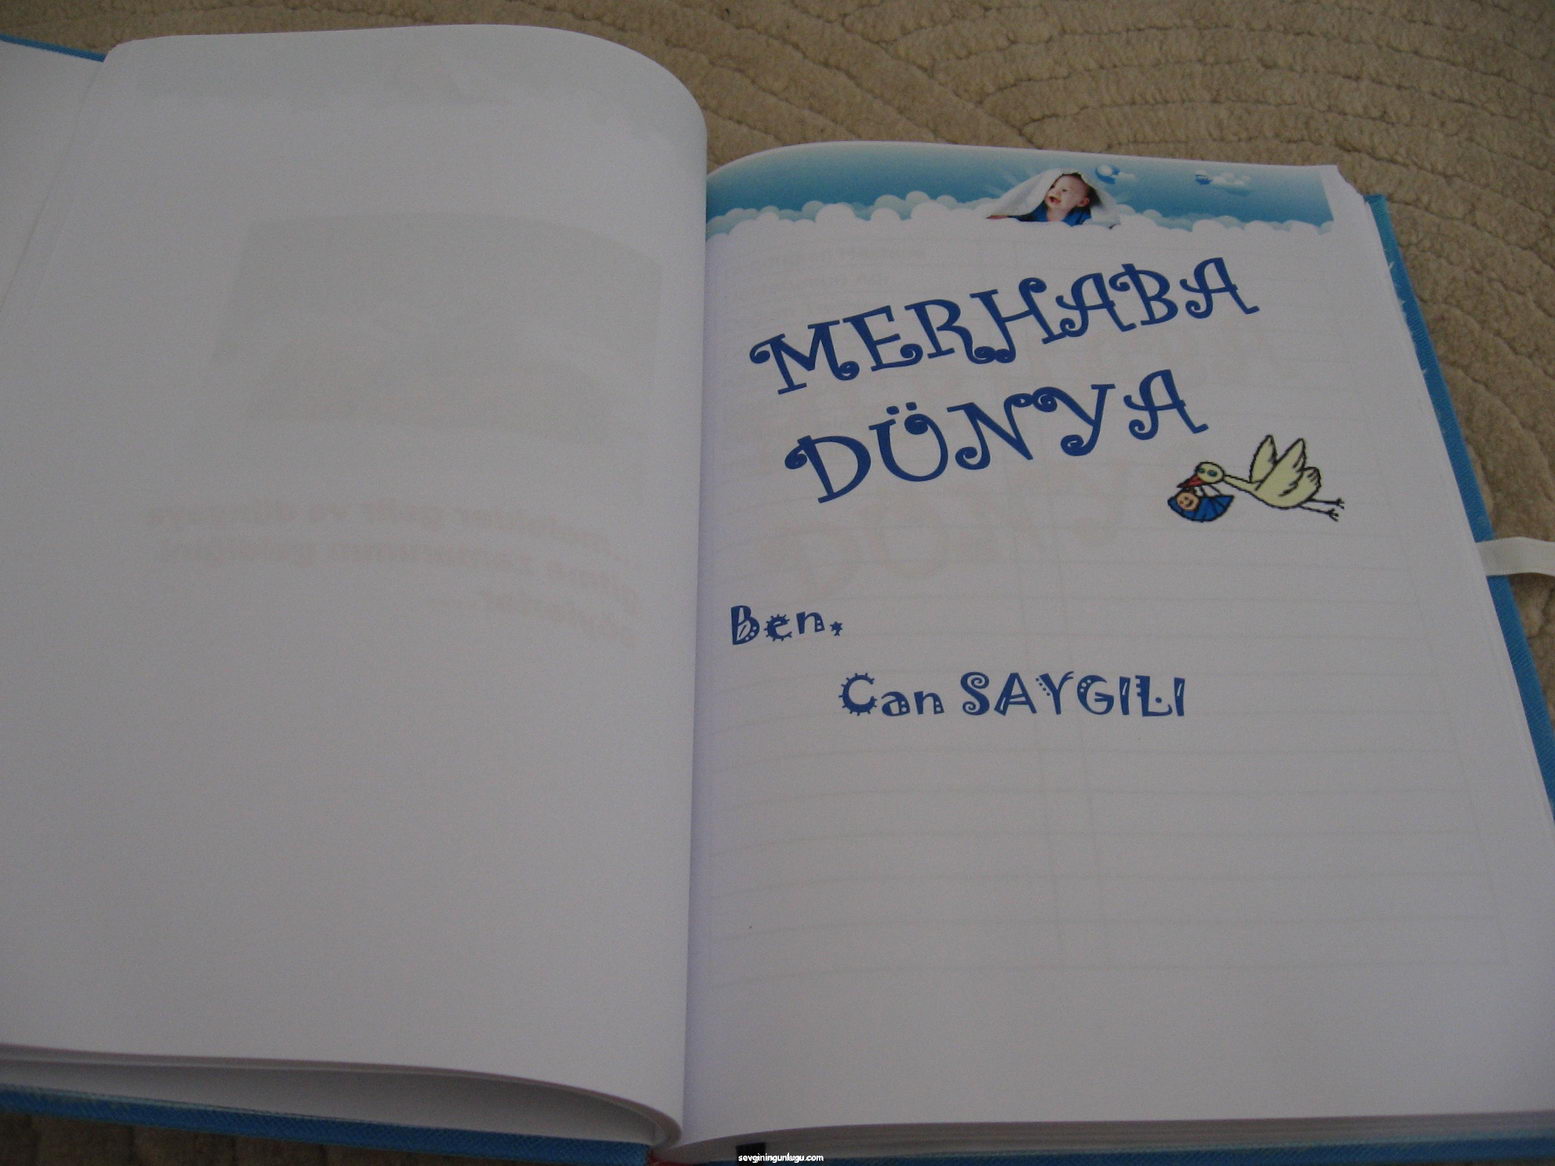 MERHABA
DÜNYA
Ben,
Can SAYGILI
sevginingunlugu.com